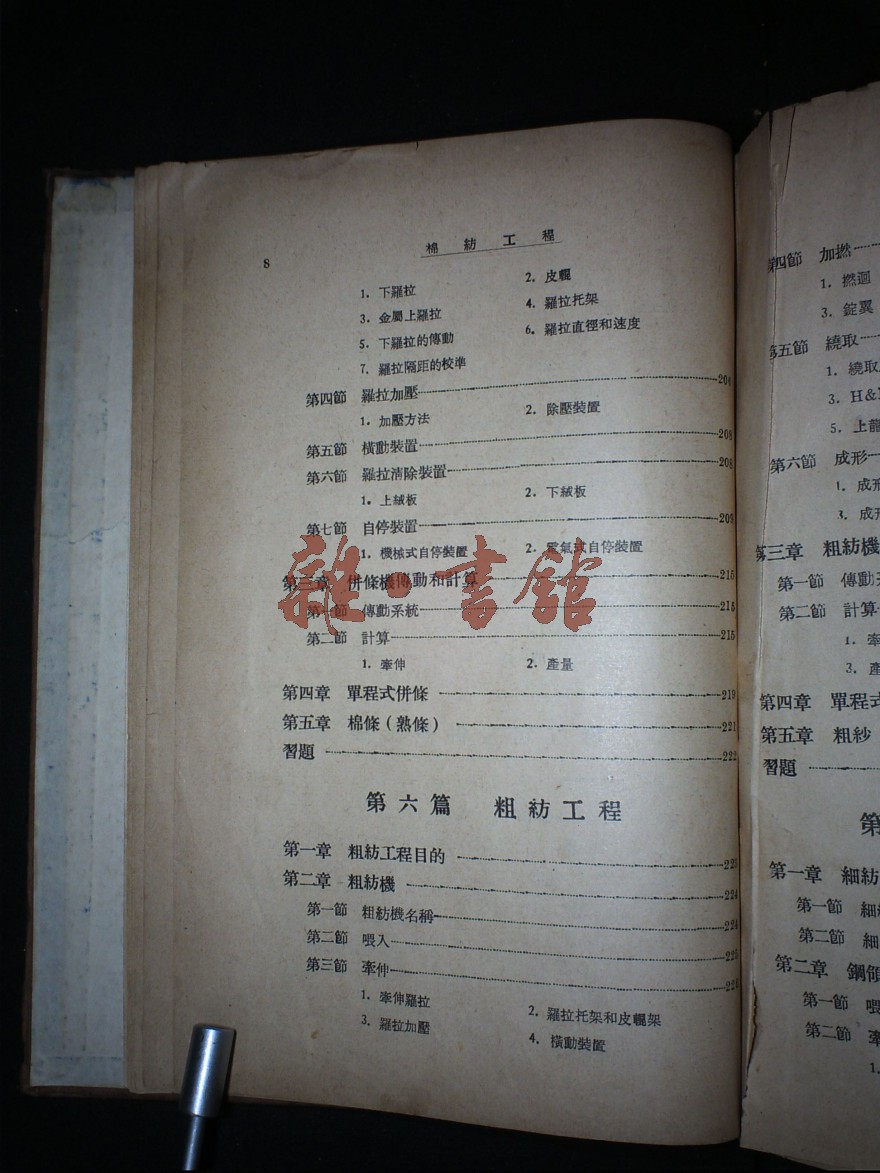 8
棉紡工程
1. 下羅拉 2. 皮輥
3. 金屬上羅拉 4. 羅拉托架
5. 下羅拉的傳動 6. 羅拉直徑和速度
7. 羅拉隔距的校準
第四節 羅拉加壓
1. 加壓方法 2. 除壓裝置
第五節 橫動裝置 208
第六節 羅拉清除裝置 208
1. 上絨板 2. 下絨板
第七節 自停裝置 209
1. 機械式自停裝置 2. 電氣式自停裝置
第三章 併條機傳動和計算 215
第一節 傳動系統 215
第二節 計算 215
1. 牽伸 2. 產量
第四章 單程式併條 219
第五章 棉條(熟條) 221
習題 222
第六篇 粗紡工程
第一章 粗紡工程目的 223
第二章 粗紡機 224
第一節 粗紡機名稱 224
第二節 喂入 225
第三節 牽伸
1. 牽伸羅拉 2. 羅拉托架和皮輥架
3. 羅拉加壓 4. 橫動裝置
雜·書館
第四節 加撚
1. 撚迴
3. 錠翼
第五節 繞取
1. 繞取
3. H&
5. 上龍
第六節 成形
1. 成形
3. 成形
第三章 粗紡機
第一節 傳動
第二節 計算
1. 牽
3. 產
第四章 單程式
第五章 粗紗
習題
第
第一章 細紡
第一節 細
第二節 細
第二章 鋼領
第一節 喂
第二節 牽
1.